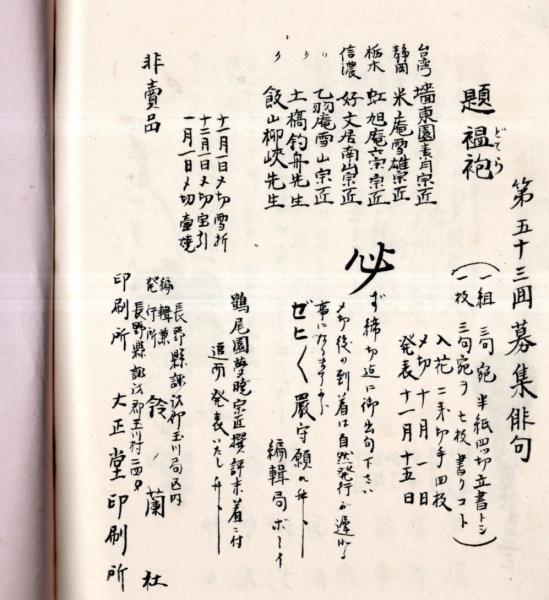 第五十三囬募集俳句
題 褞袍
どてら
(一組 三句宛 半紙四ツ切立書トシ
一枚 三句宛ヲ 七枚書クコト)
入花 二銭切手四枚
〆切 十月一日
発表 十一月十五日
台湾 墻東園素月宗匠
静岡 米庵雪雄宗匠
栃木 虹旭庵六宗宗匠
信濃 好文居南崗宗匠
〃 乙羽庵雪山宗匠
〃 土橋釣舟先生
〃 飯山柳峡先生
必ず締切迄に御出句下さい
〆切後の到着は自然発行が遅れる
事になります
ゼヒ〱厳守願ひ升
編輯局
十一月一日〆切 雪折
十二月一日〆切 宝引
一月一日〆切 壷焼
鶴尾園夢暁宗匠撰評未着ニ付
追而発表いたし升
非賣品
編輯兼
発行所
長野縣諏訪郡玉川局区内
鈴蘭社
長野縣諏訪郡玉川村
印刷所 大正堂印刷所